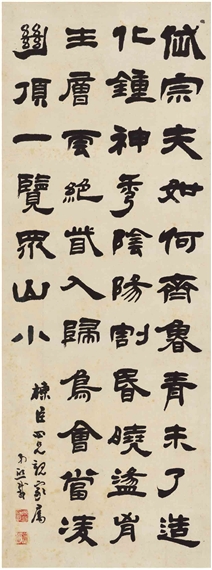 岱宗夫如何齊魯青未了造
化鍾神秀陰陽割昏曉盪胷
生層雲絕眥入歸鳥會當凌
𢇍頂一覽眾山小
臣四兄親家屬